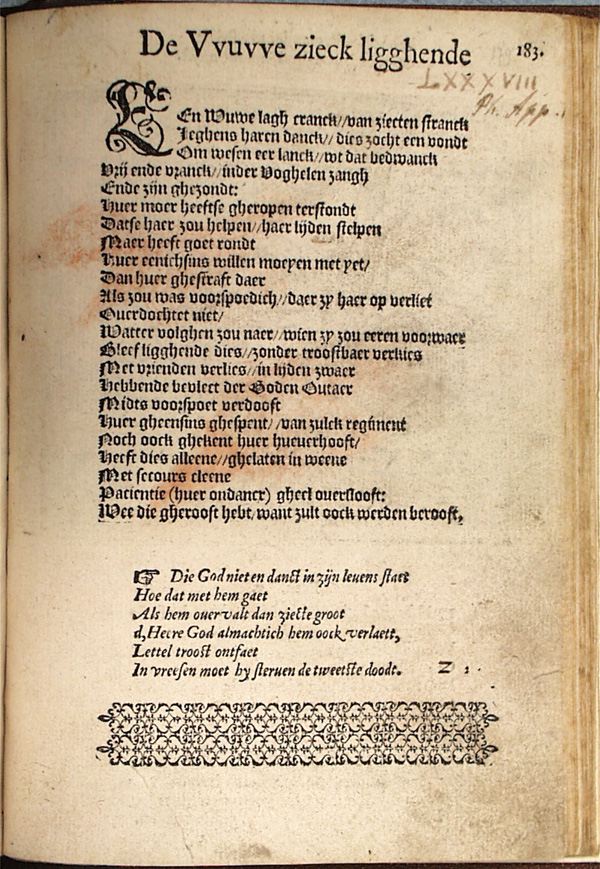 De Vvuvve zieck ligghende 183.
LXXXVIII
Ph. App.
EEn Wuwe lagh cranck//van ziecten stranck
Jeghens haren danck// dies zocht een vondt
Om wesen eer lanck//wt dat bedwanck
Vrij ende vranck//inder Voghelen zangh
Ende zijn ghezondt:
Huer moer heeftse gheropen terstondt
Datse haer zou helpen//haer lijden stelpen
Maer heeft goet rondt
Huer eenichsins willen moeyen met yet/
Dan huer ghestraft daer
Als zou was voorspoedich//daer zy haer op verliet
Ouerdochtet niet/
Watter volghen zou naer//wien zy zou eeren voorwaer
Bleef ligghende dies//zonder troostbaer verkies
Met vrienden verlies//in lijden zwaer
Hebbende bevlect der Goden Outaer
Midts voorspoet verdooft
Huer gheensins ghespent//van zulck regiment
Noch oock ghekent huer hueuerhooft/
Heeft dies alleene//ghelaten in weene
Met secours cleene
Pacientie (huer ondancr) gheel ouerslooft:
Wee die gherooft hebt/want zult oock werden berooft,
☞ Die God niet en danckt in zijn leuens staet
Hoe dat met hem gaet
Als hem overvalt dan ziecte groot
d,Heere God almachtich hem oock verlaett,
Lettel troost ontfaet
In vreesen moet hy steruen de tweetste doodt. Z 1.